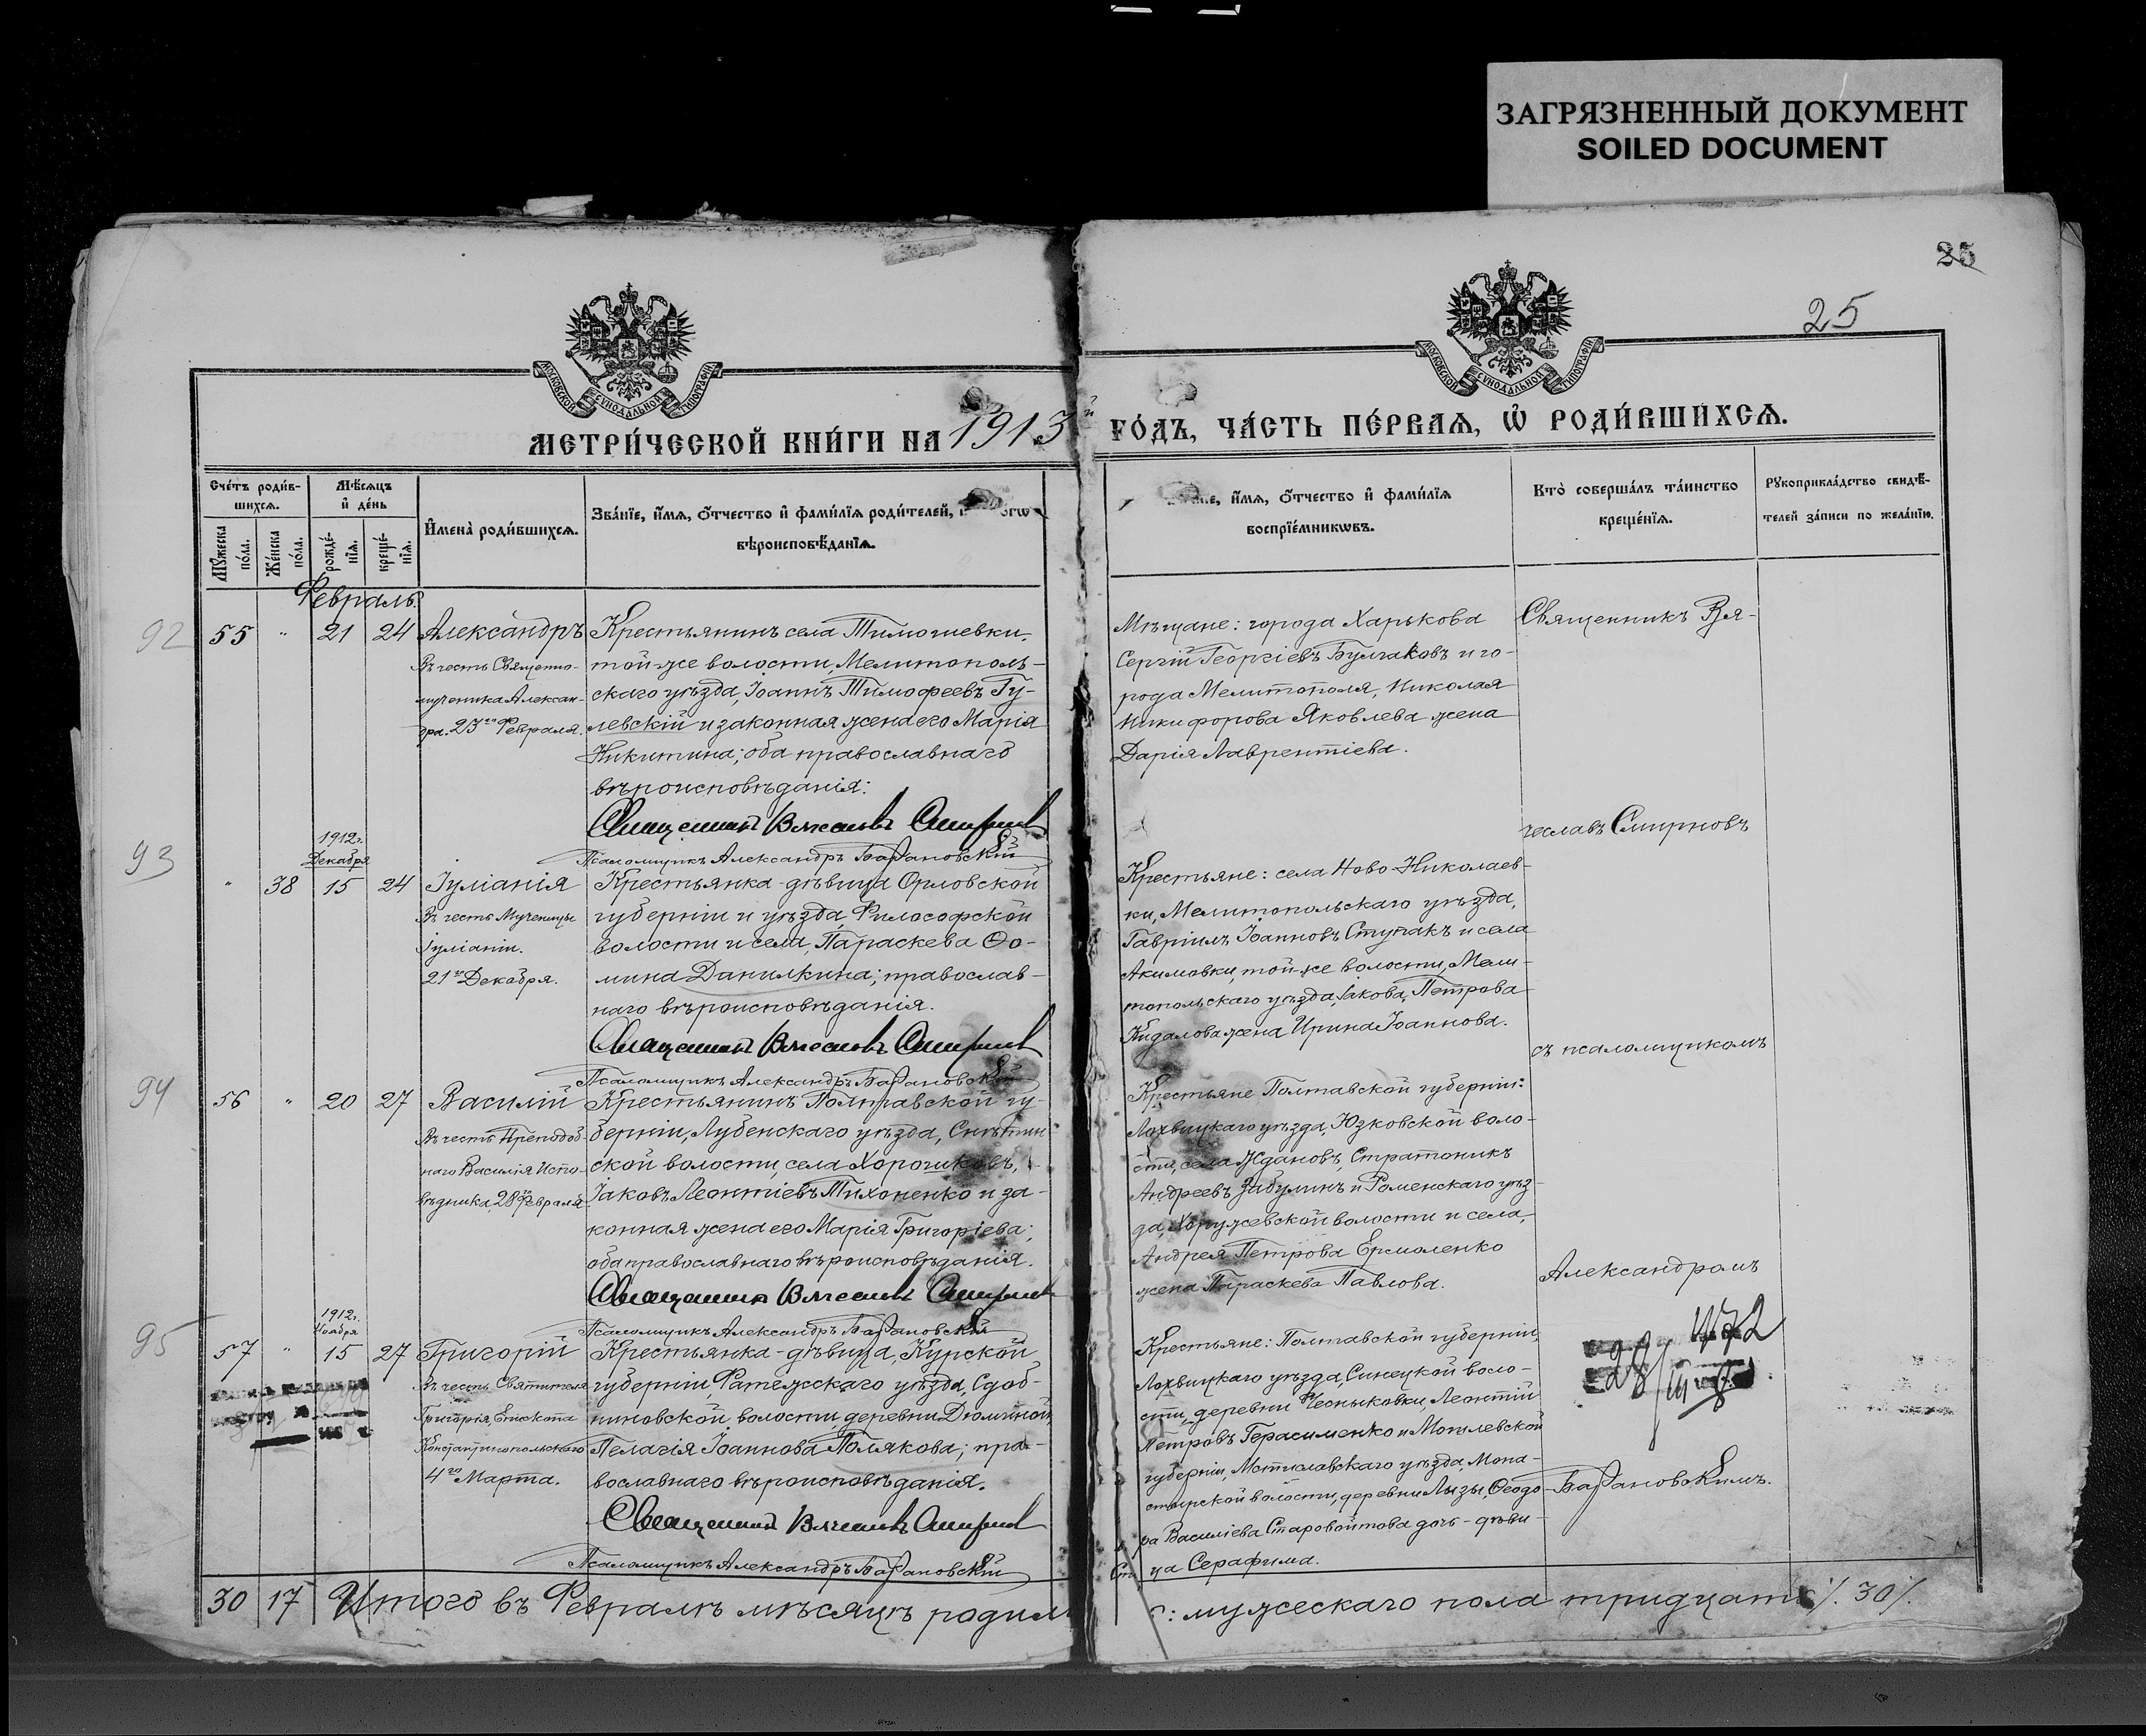 ЗАГРЯЗНЕННЫЙ ДОКУМЕНТ
SOILED DOCUMENT
25
25
МОСКОВСКОЙ СУНОДАЛЬНОЙ ТИПОГРАФІИ
МОСКОВСКОЙ СУНОДАЛЬНОЙ ТИПОГРАФІИ
МЕТРИ́ЧЕСКОЙ КНИ́ГИ НА 1913й ГО́ДЪ, ЧА́СТЬ ПЕ́РВАѦ, Ѡ҆ РОДИ́ВШИХСѦ.
Сче́тъ роди́в-
шихсѧ.
Мꙋ́жеска по́ла.
Же́нска по́ла.
Мѣ́сѧцъ
и҆ де́нь
рожде́-
нїѧ.
креще́-
нїѧ.
И҆мена̀ роди́вшихсѧ.
Зва́нїе, и҆́мѧ, ѻ҆́тчество и҆ фами́лїѧ роди́телей,
вѣроисповѣ́данїѧ.
и҆́мѧ, ѻ҆́тчество и҆ фами́лїѧ
воспрїе́мникѡвъ.
Кто̀ соверша́лъ та́инство
креще́нїѧ.
Рꙋкоприкла́дство свидѣ́-
телей за́писи по жела́нїю.
Февраль.
92
55 " 21 24 Александръ
Въ честь Священно-
мученика Алексан-
дра. 23го Февраля.
Крестьянинъ села Тимошевки,
той-же волости, Мелитополь-
скаго уѣзда, Іоаннъ Тимофеевъ Гу-
левскій и законная жена его Марія
Никитина; оба православнаго
вѣроисповѣданія:
Священникъ Вячеславъ Смирновъ
Псаломщикъ Александръ Барановскій
Мѣщане: города Харькова
Сергій Георгіевъ Булгаковъ и го-
рода Мелитополя, Николая
Никифорова Яковлева жена
Дарія Лаврентіева.
Священникъ Вя-
93
1912г.
Декабря
" 38 15 24 Іуліанія
Въ честь Мученицы
Іуліаніи.
21го Декабря.
Крестьянка-дѣвица Орловской
губерніи и уѣзда, Философской
волости и села, Параскева Ѳо-
мина Данилкина; православ-
наго вѣроисповѣданія.
Священникъ Вячеславъ Смирновъ
Псаломщикъ Александръ Барановскій
чеславъ Смирновъ
Крестьяне: села Ново-Николаев-
ки, Мелитопольскаго уѣзда,
Гавріилъ Іоанновъ Ступакъ и села
Акимовки, той-же волости, Мели-
топольскаго уѣзда, Іакова Петрова
Кидалова жена Ирина Іоаннова.
съ псаломщикомъ
94
56 " 20 27 Василій
Въ честь Преподоб-
наго Василія Испо-
вѣдника 28го Февраля
Крестьянинъ Полтавской гу-
берніи, Лубенскаго уѣзда, Снѣтин-
ской волости, села Хорошковъ,
Іаковъ Леонтіевъ Тихоненко и за-
конная жена его Марія Григоріева;
оба православнаго вѣроисповѣданія.
Священникъ Вячеславъ Смирновъ
Псаломщикъ Александръ Барановскій
Крестьяне Полтавской губерніи:
Лохвицкаго уѣзда, Юзковской воло-
сти, села Ждановъ, Стратоникъ
Андреевъ Забулинъ и Роменскаго уѣз-
да, Хоружевской волости и села,
Андрея Петрова Ермоленко
жена Параскева Павлова.
Александромъ
95
1912г.
Ноября
57 " 15 27 Григорій
Въ честь Святителя
Григорія, Епископа
Константинопольскаго
4го Марта.
Крестьянка-дѣвица, Курской
губерніи, Фатежскаго уѣзда, Сдоб-
никовской волости, деревни Дюминой,
Пелагія Іоаннова Полякова; пра-
вославнаго вѣроисповѣданія.
Священникъ Вячеславъ Смирновъ
Псаломщикъ Александръ Барановскій
Крестьяне: Полтавской губерніи,
Лохвицкаго уѣзда, Синецкой воло-
сти, деревни Чесныковки, Леонтій
Петровъ Герасименко и Могилевской
губерніи, Мстиславскаго уѣзда, Мона-
стырской волости, деревни Лызы, Ѳеодо-
ра Василіева Старовойтова дочь-дѣви-
ца Серафима.
28/III
Барановскимъ.
30 17 Итого въ Февралѣ мѣсяцѣ родил
: мужескаго пола тридцать /. 30 /.